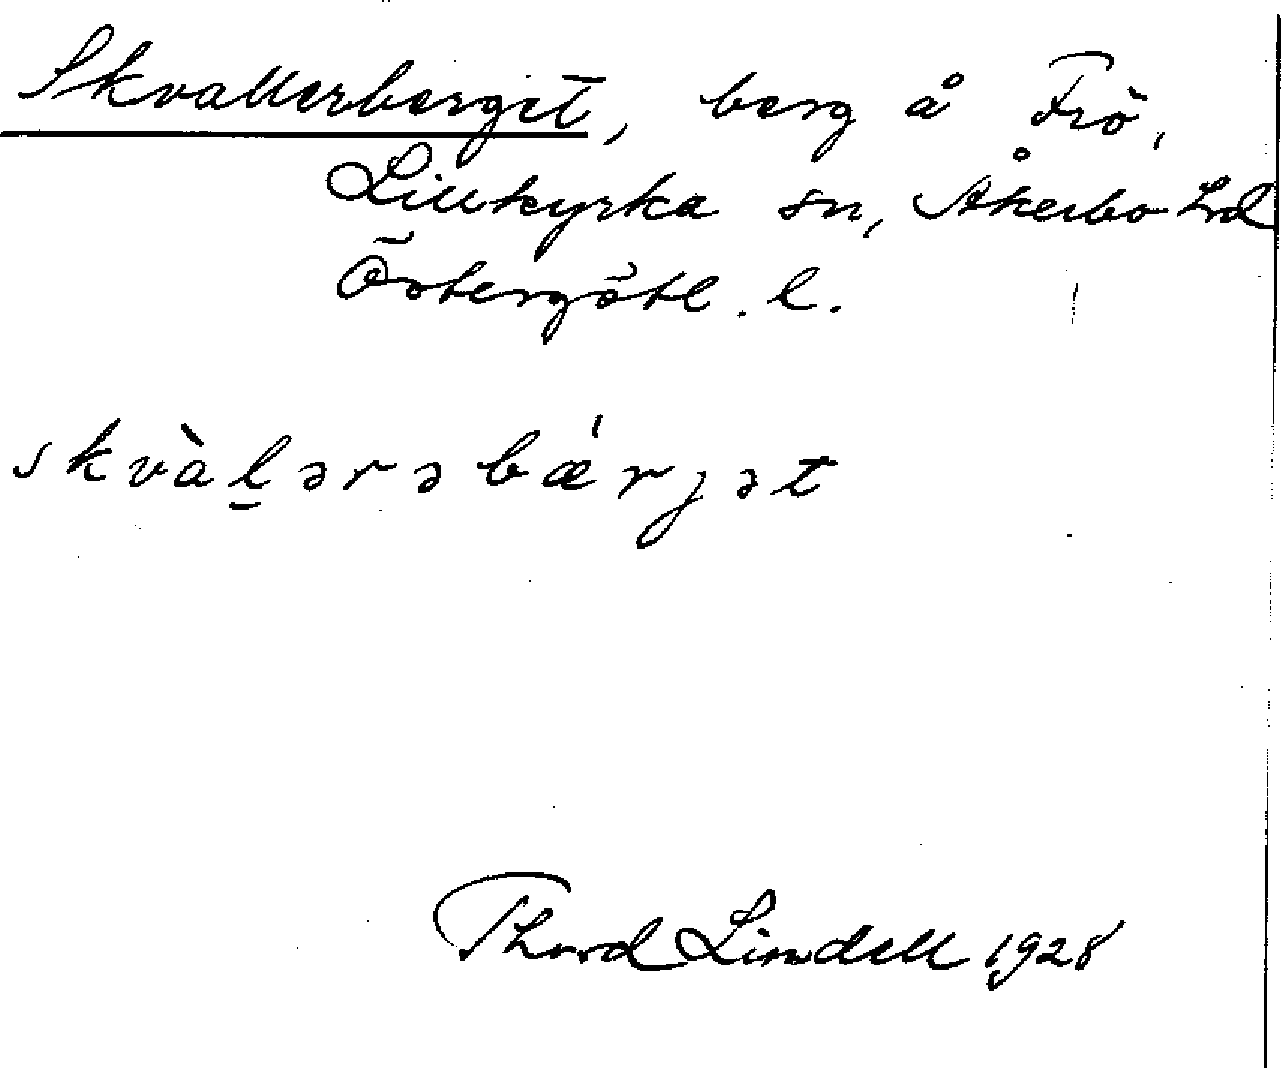 Skvallerberget, berg å Frö,
Lillkyrka sn, Åkerbo hd
Östergötl. l.
skvàl̠ərəbǽrjət
Thord Lindell 1928